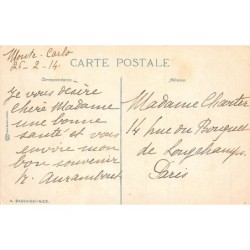 Monte-Carlo
25-2-14
CARTE POSTALE
Correspondance
Adresse
Je vous désire
chère Madame
une bonne
santé et vous
envoie mon
bon souvenir
Madame Charter
14 rue du Bouquet
de Longchamp
Paris